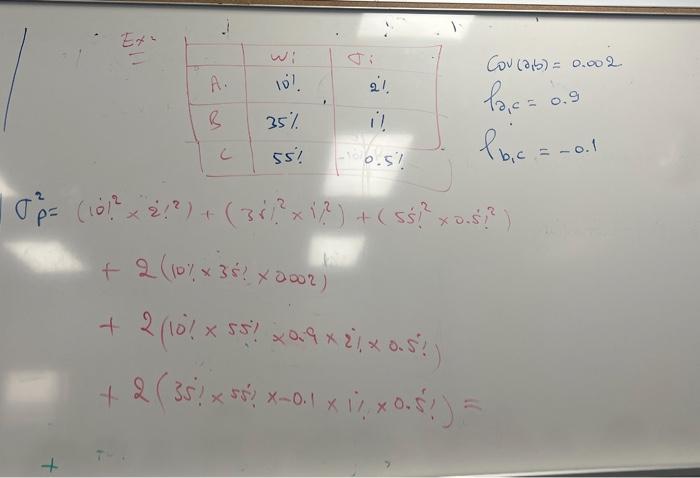 Ex:
Wi σi
A. 10% 2%
B 35% 1%
C 55% 0.5%
Cov(a,b) = 0.002
ρa,c = 0.9
ρb,c = -0.1
σ²p = (10%² × 2%²) + (35%² × 1%²) + (55%² × 0.5%²)
+ 2(10% × 35% × 0.002)
+ 2(10% × 55% × 0.9 × 2% × 0.5%)
+ 2(35% × 55% × -0.1 × 1% × 0.5%) =
+